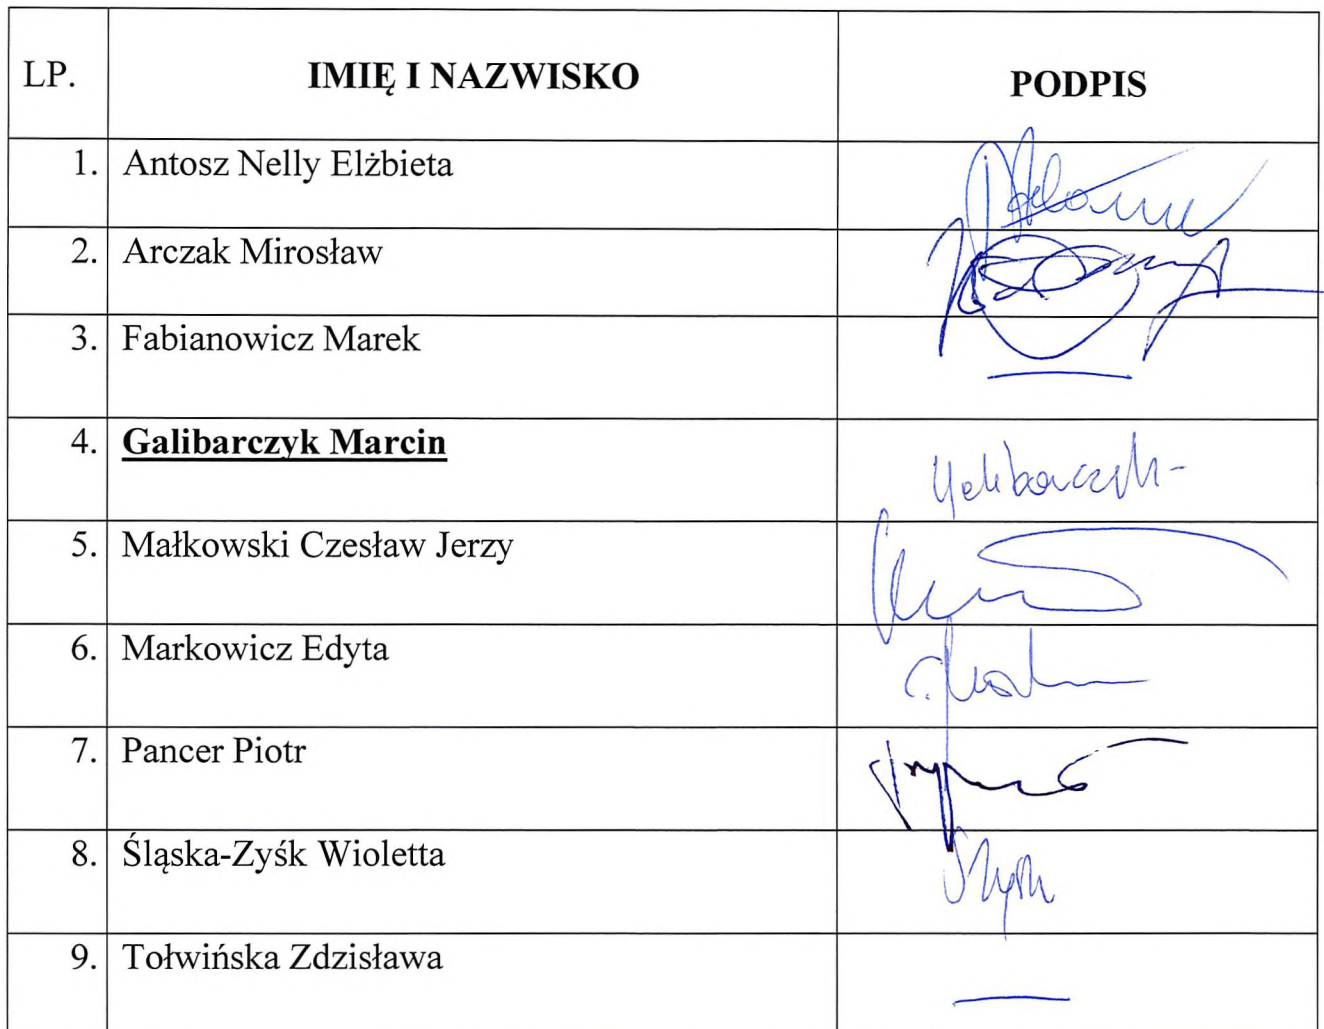 LP. IMIĘ I NAZWISKO PODPIS
1. Antosz Nelly Elżbieta
2. Arczak Mirosław
3. Fabianowicz Marek
4. Galibarczyk Marcin Galibarczyk
5. Małkowski Czesław Jerzy
6. Markowicz Edyta
7. Pancer Piotr
8. Śląska-Zyśk Wioletta
9. Tołwińska Zdzisława